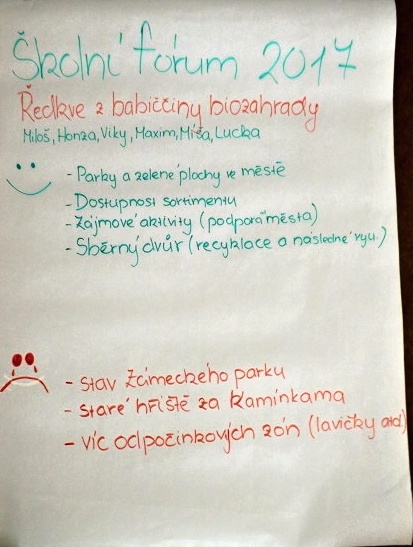 Školní fórum 2017
Ředkve z babiččiny biozahrady
Miloš, Honza, Viky, Maxim, Míša, Lucka
- Parky a zelené plochy ve městě
- Dostupnost sortimentu
- Zájmové aktivity (podpora města)
- Sběrný dvůr (recyklace a následné vyu.)
- stav Zámeckého parku
- staré hřiště za Kamínkama
- víc odpočinkových zón (lavičky atd)